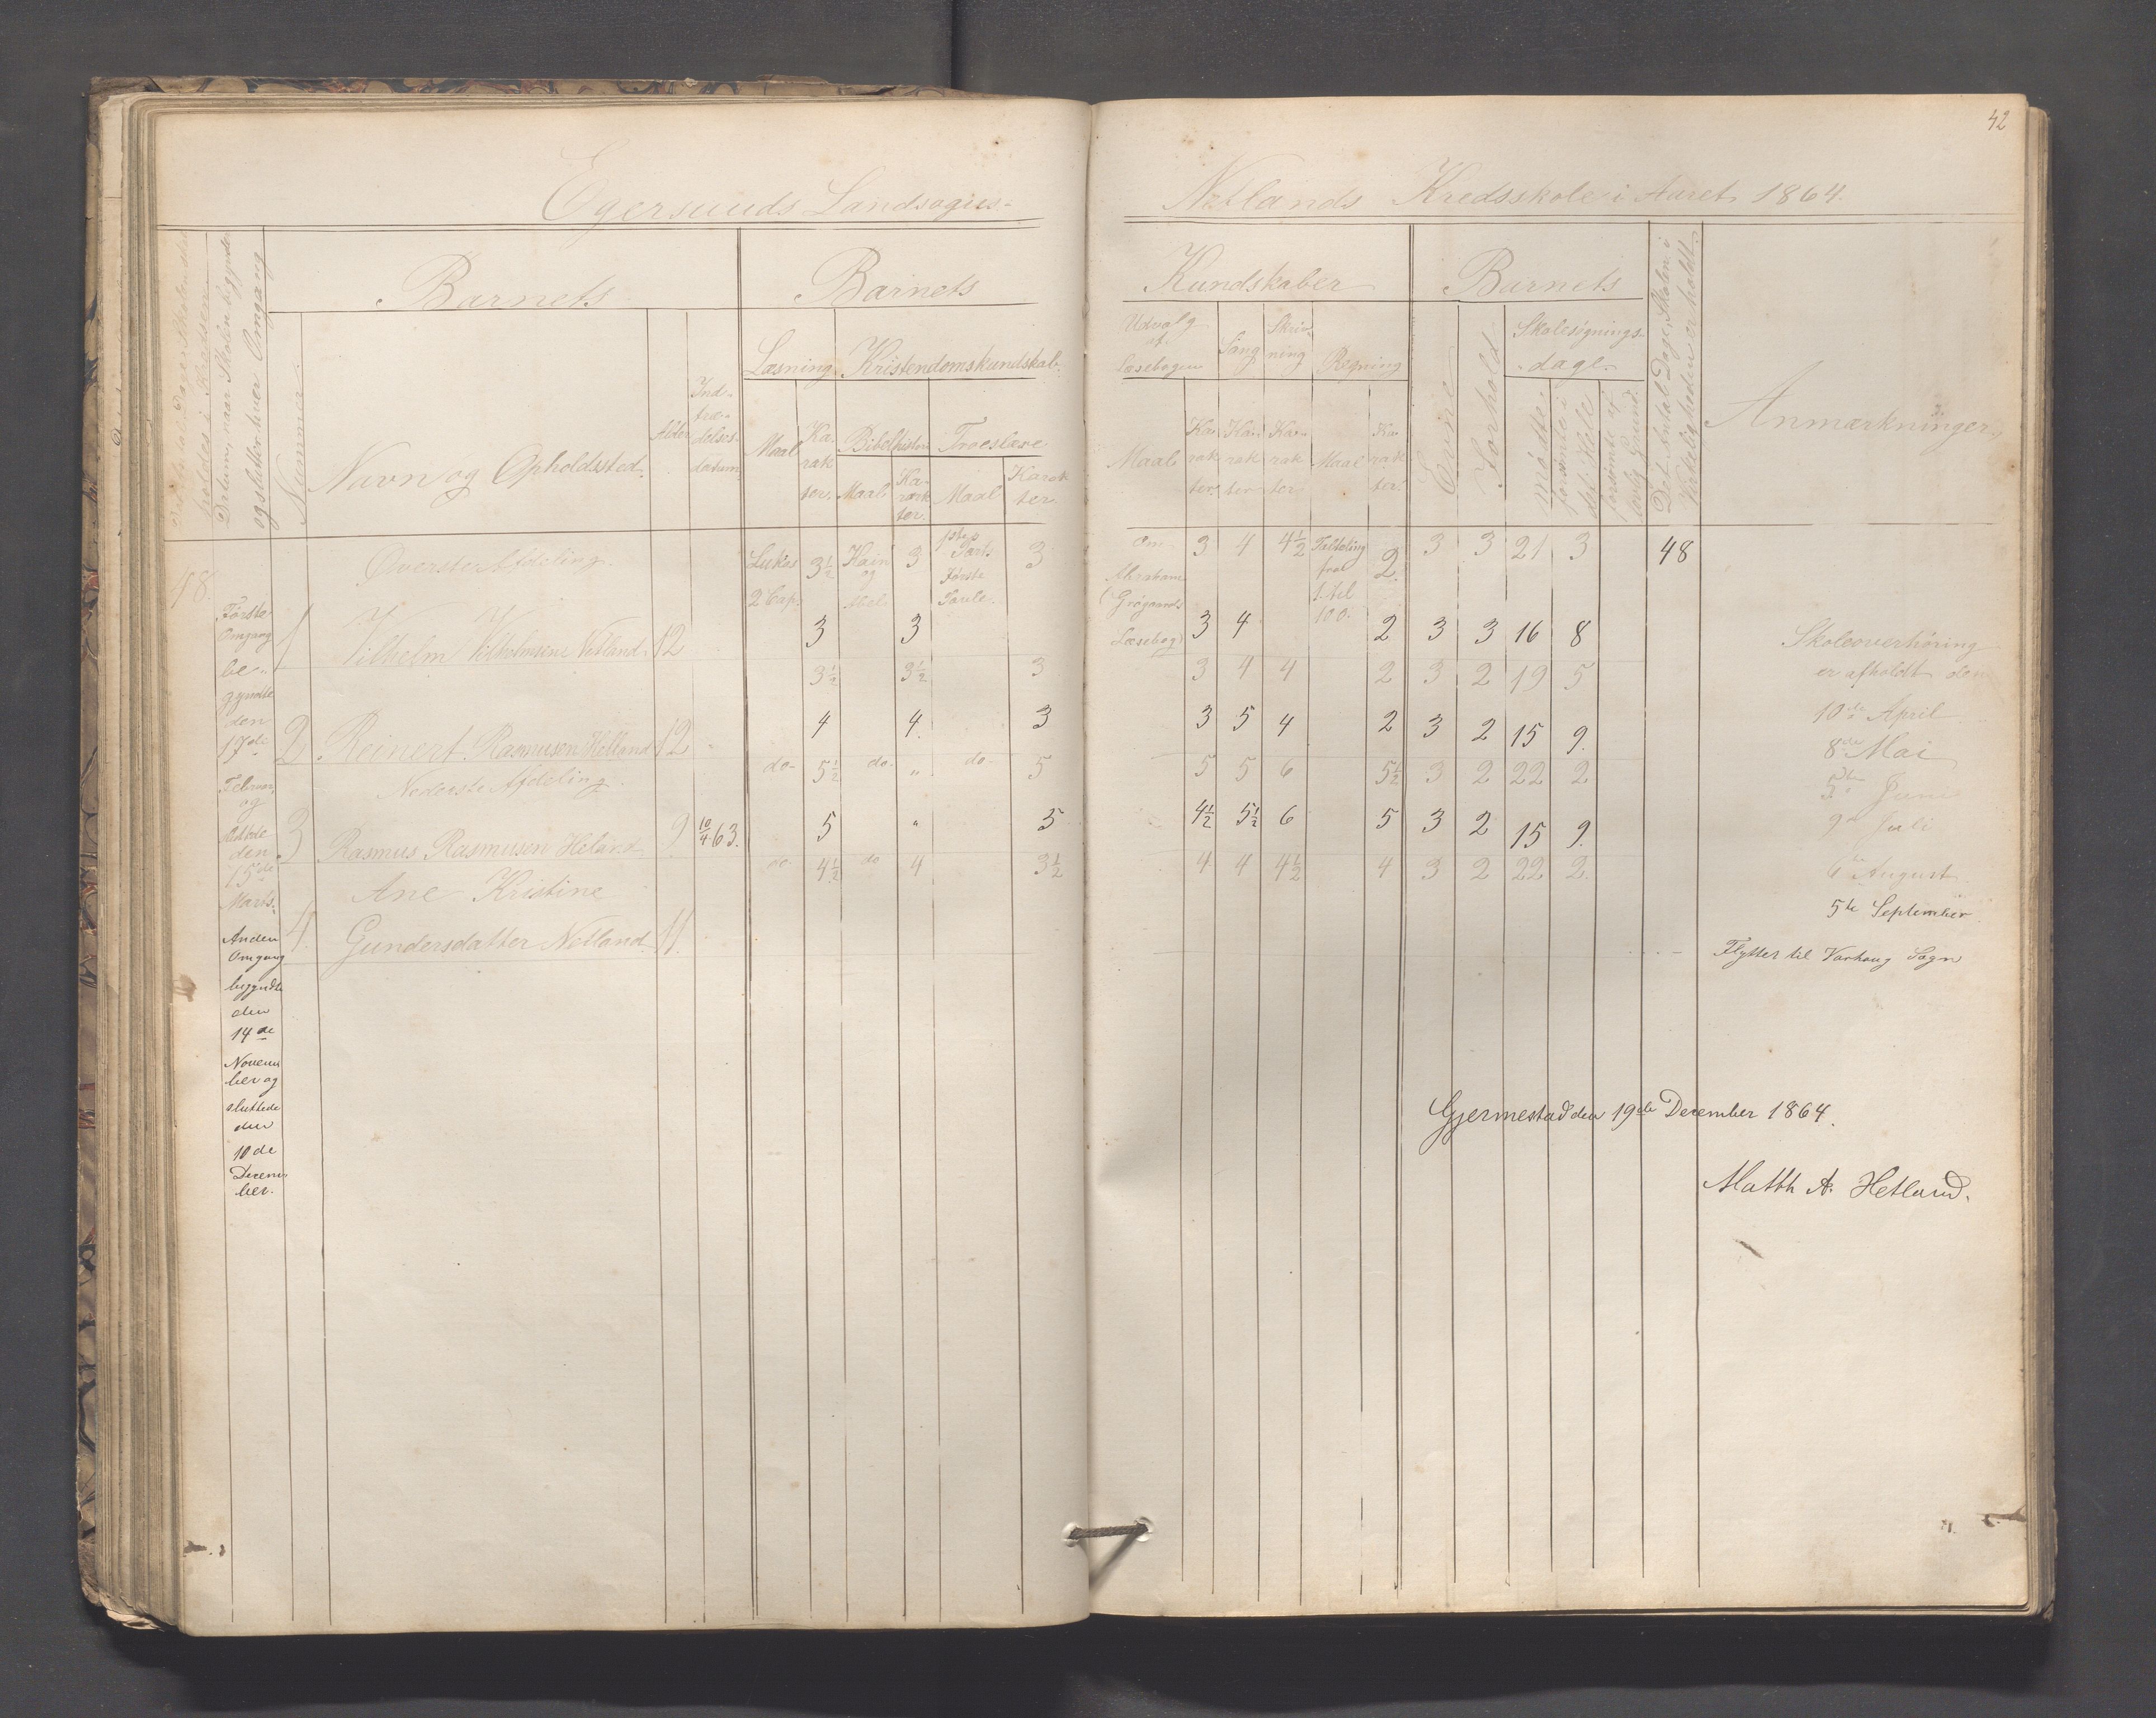 42
Egersunds Landsogns-
Netlands Kredsskole i Aaret 1864.
Datum, naar Skolen begynder
og slutter hver Omgang
Nummer.
Barnets
Navn og Opholdssted.
Alder
Ind-
træ-
delses-
datum
Barnets
Læsning
Maal
Ka-
rak
ter.
Kristendomskundskab.
Bibelhistorie
Maal
Ka-
rak
ter.
Troeslære
Maal
Karak
ter
Kundskaber
Udvalg
af
Læsebogen
Maal
Ka-
rak
ter.
Sang
Ka-
rak
ter
Skriv-
ning
Ka-
rak
ter
Regning
Maal
Ka-
rak
ter.
Barnets
Evne
Forhold
Skolesøgnings-
dage.
mødte
forsømte i
det Hele
forsømte af
lovlig Grund.
Det Antal Dage, Skolen i
Virkeligheden er holdt.
Anmærkninger.
48.
Øverste Afdeling.
Lukas 3½ Kain 3 Parts 3
og Første
2 Cap. Abel
Om 3 4 4½ Taltæling 2 3 3 21 3 48
Abraham fra
(Grøgaards 1 til
Læsebog) 100.
Første
Omgang
be-
gyndte
den
17de
Februar
og
sluttede
den
15de
Marts.
1 Vilhelm Vilhelmsen Netland 12
3 3
3 4 2 3 3 16 8
3½ 3½ 3
3 4 4 2 3 2 19 5
2 Reinert Rasmusen Helland 12
4 4. 3
3 5 4 2 3 2 15 9.
Nederste Afdeling.
do- 5½ do- " do- 5
5 5 6 5½ 3 2 22 2
3 Rasmus Rasmusen Heland 9 10/4 63.
5 " 5
4½ 5½ 6 5 3 2 15 9.
do- 4½ do 4 3½
4 4 4½ 4 3 2 22 2.
Ane Kristine
4. Gundersdatter Netland 11.
Anden
Omgang
begyndte
den
14de
Novem
ber og
sluttede
den
10de
Decem
ber.
Skoleoverhøring
er afholdt den
10de April
8de Mai
5te Juni
9de Juli
6te August
5te September.
Flytter til Varhaug Sogn
Gjermestad den 19de December 1864.
Matth A. Hetland.